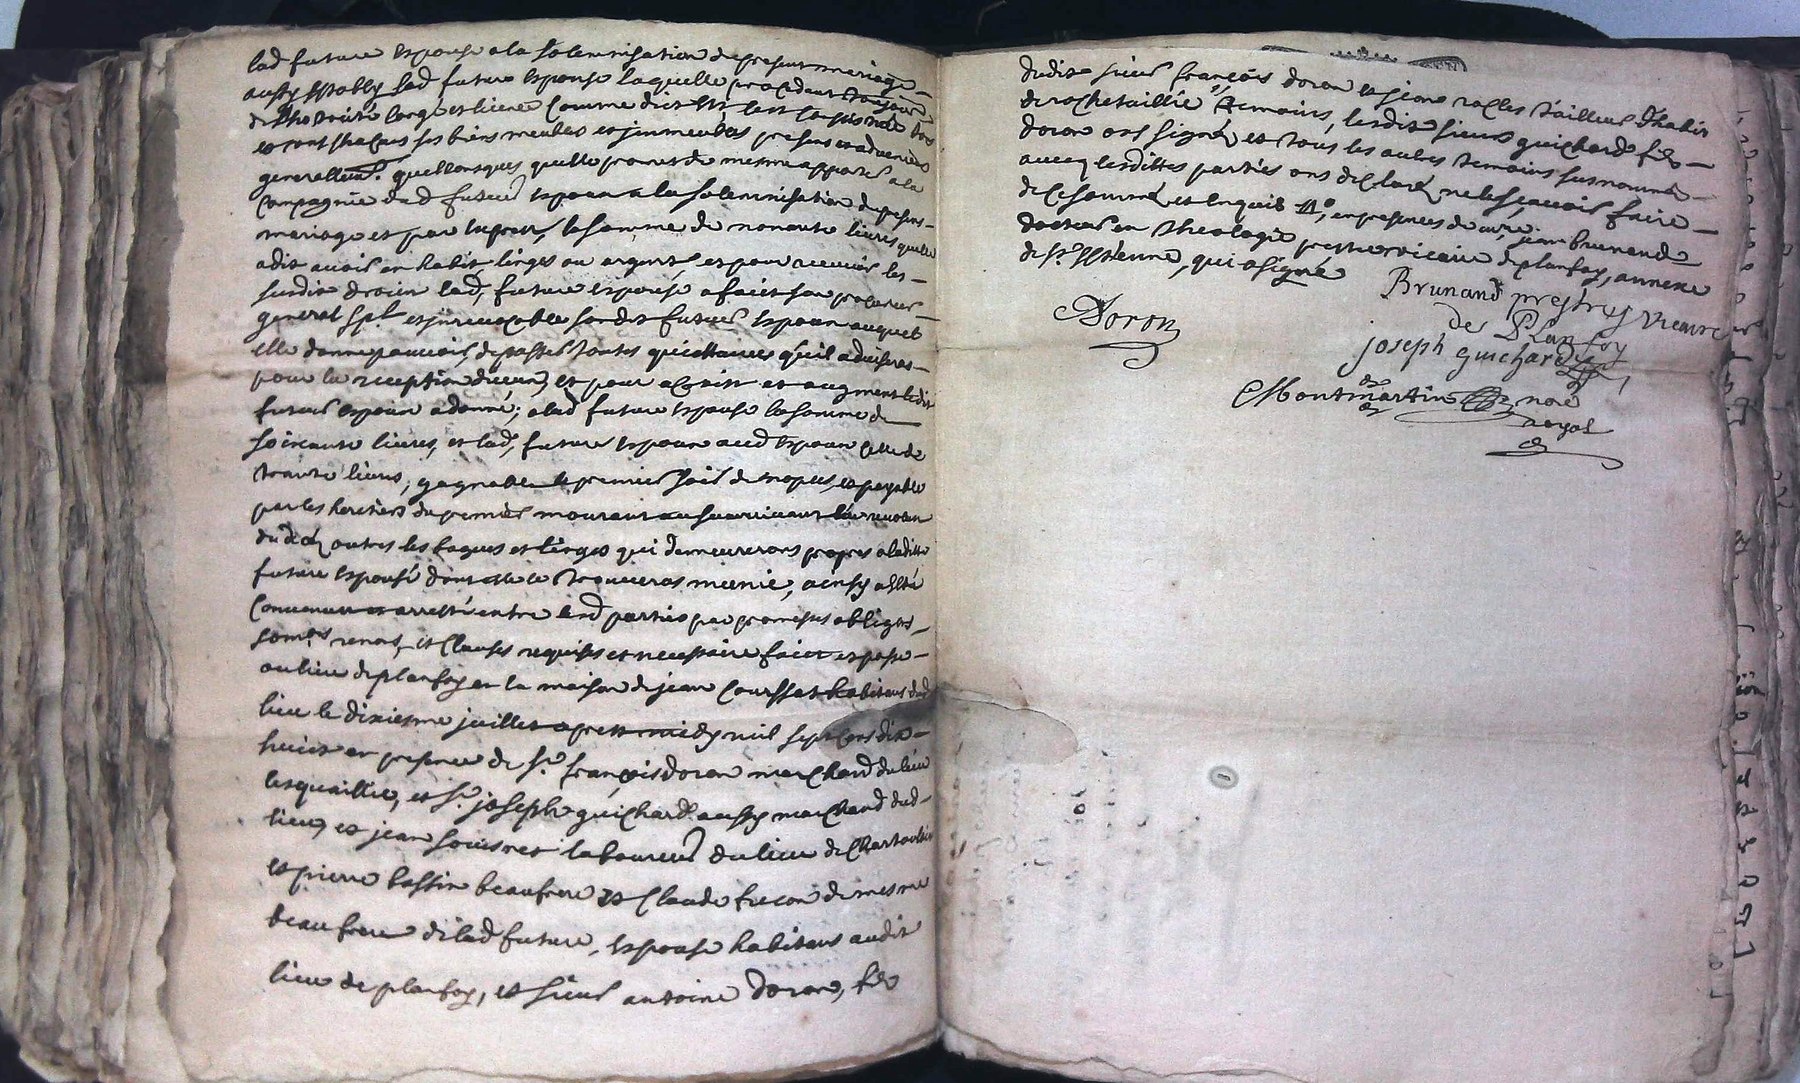 lad future espouse a la solemnisation du present mariage
aussy estably lad future espouse laquelle procedant toujours
de l'hotorité congé et licence comme dict est, sest constituée dors
et constituant ses biens meubles et jmmeubles presens et advenirs
generallemt quelconques quelle promet de mesme apporter a la
compagnie dud futeur espoux a la solemnisation du present
mariage et par exprest la somme de nonante livres quelle
a dit avoir en habit linges ou argent et pour recevoir les
susdits droits lad, future espouse a faict son procureur
general spl et jrrevocable sondit futeur espoux auquel
elle donne pouvoir de passer toutes quittances quil advisera
pour la reception diceux, et pour acroist et augment ledit
futeur espoux a donné, a lad future espouse la somme de
soixante livres, et lad, future espouse aud espoux celle de
trante livres, gagnable le premier soir de nopces, et payable
par les heritiers du premier mourant au survivant lan revolu
du deces outres les bagues et linges qui demeureront propres a laditte
future espouse dont elle se trouvera munie, ainsy a esté
convenu et arresté entre lesd parties par promesses obligaõ
soms renons, et clauses requises et necessaire faict et passé
au lieu de planfoy en la maison de jean Courssat habitant dud
lieu le dixiesme juillet apprest midy mil sept cens dix
huict en presence de sr françois doron marchand du lieu
lesquaillier, et sr joseph guichard aussy marchand dud
lieu, et jean souvenet laboureur du lieu de
et pierre bassin beaufrere et Claude frecon de mesme
beaufrere de lad future, espouse habitans audit
lieu de planfoy, et sieur antoine doron, fils
dudit sieur françois doron et jean racles tailleur d'habit
de rochetaillié, temoins, lesdits sieurs guichard fils
doron ont signé, et tous les autres temoins susnommé
avecq lesdittes parties ont declaré ne le sçavoir faire
de ce sommé et enquis, en presence de mre jean brunand
docteur en theologie prestre vicaire de planfoy, annexe
de st estienne, qui a signé
Brunand prestre vicaire
de Planfoy
Doron
joseph guichard
Montmartin nore
royal